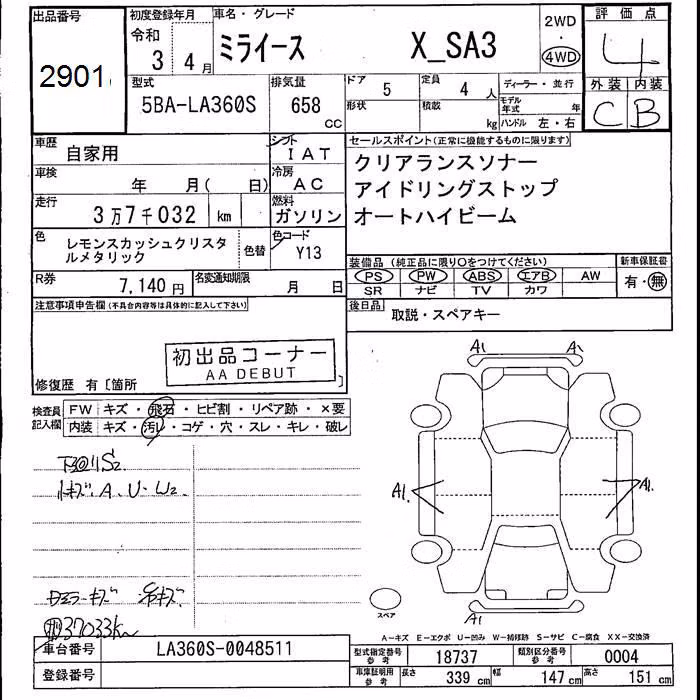 出品番号
2901
初度登録年月
令和
3 4月
車名・グレード
ミライース X_SA3
2WD
・
4WD
評価点
4
外装 内装
C B
型式
5BA-LA360S
排気量
658
CC
ドア 5
形状
定員 4 人
積載 kg
ディーラー・並行
モデル年式 年
ハンドル 左・右
車歴 自家用
シフト IAT
車検 年 月( 日)
冷房 AC
走行 3万7千032 km
燃料 ガソリン
色 レモンスカッシュクリスタ
ルメタリック
色替
色コード Y13
R券 7,140円
名変通知期限 月 日
セールスポイント(正常に機能するものに限ります)
クリアランスソナー
アイドリングストップ
オートハイビーム
装備品(純正品に限り〇をつけてください)
PS PW ABS エアB AW
SR ナビ TV カワ
新車保証書
有・無
後日品 取説・スペアキー
注意事項申告欄(不具合内容等は具体的に記入して下さい)
初出品コーナー
AA DEBUT
修復歴 有〔箇所 〕
検査員
記入欄
FW キズ・飛石・ヒビ割・リペア跡・×要
内装 キズ・汚レ・コゲ・穴・スレ・キレ・破レ
下回りS2
小キズ、A、U、W2
カミラーキズ
37033km
A1 A1
A1. A1.
A1
スペア
A-キズ E-エクボ U-凹み W-補修跡 S-サビ C-腐食 XX-交換済
車台番号 LA360S-0048511
登録番号
型式指定番号
参考
18737
類別区分番号
参考
0004
車庫証明用
参考
長さ 339 cm 幅 147 cm 高さ 151 cm